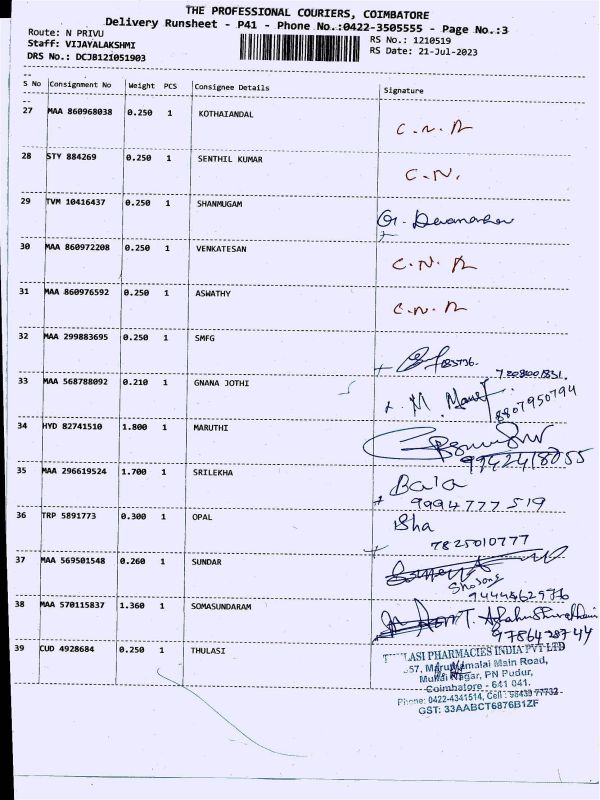 THE PROFESSIONAL COURIERS, COIMBATORE
Delivery Runsheet - P41 - Phone No.:0422-3505555 - Page No.:3
Route: N PRIVU
RS No.: 1210519
Staff: VIJAYALAKSHMI
RS Date: 21-Jul-2023
DRS No.: DCJB121051903
S No Consignment No Weight PCS Consignee Details Signature
27 MAA 860968038 0.250 1 KOTHAIANDAL C.N.R
28 STY 884269 0.250 1 SENTHIL KUMAR C.N.
29 TVM 10416437 0.250 1 SHANMUGAM G.
30 MAA 860972208 0.250 1 VENKATESAN C.N.R
31 MAA 860976592 0.250 1 ASWATHY C.N.R
32 MAA 299883695 0.250 1 SMFG
33 MAA 568788092 0.210 1 GNANA JOTHI M.
8807950794
34 HYD 82741510 1.800 1 MARUTHI
9942418055
35 MAA 296619524 1.700 1 SRILEKHA Bala
9994777519
36 TRP 5891773 0.300 1 OPAL Isha
7825010777
37 MAA 569501548 0.260 1 SUNDAR
9444562976
38 MAA 570115837 1.360 1 SOMASUNDARAM T.
9786428744
39 CUD 4928684 0.250 1 THULASI
THULASI PHARMACIES INDIA PVT LTD
57, Maruthamalai Main Road,
Mullai Nagar, PN Pudur,
Coimbatore - 641 041.
Phone: 0422-4341514, Cell: 98430 77732
GST: 33AABCT6876B1ZF